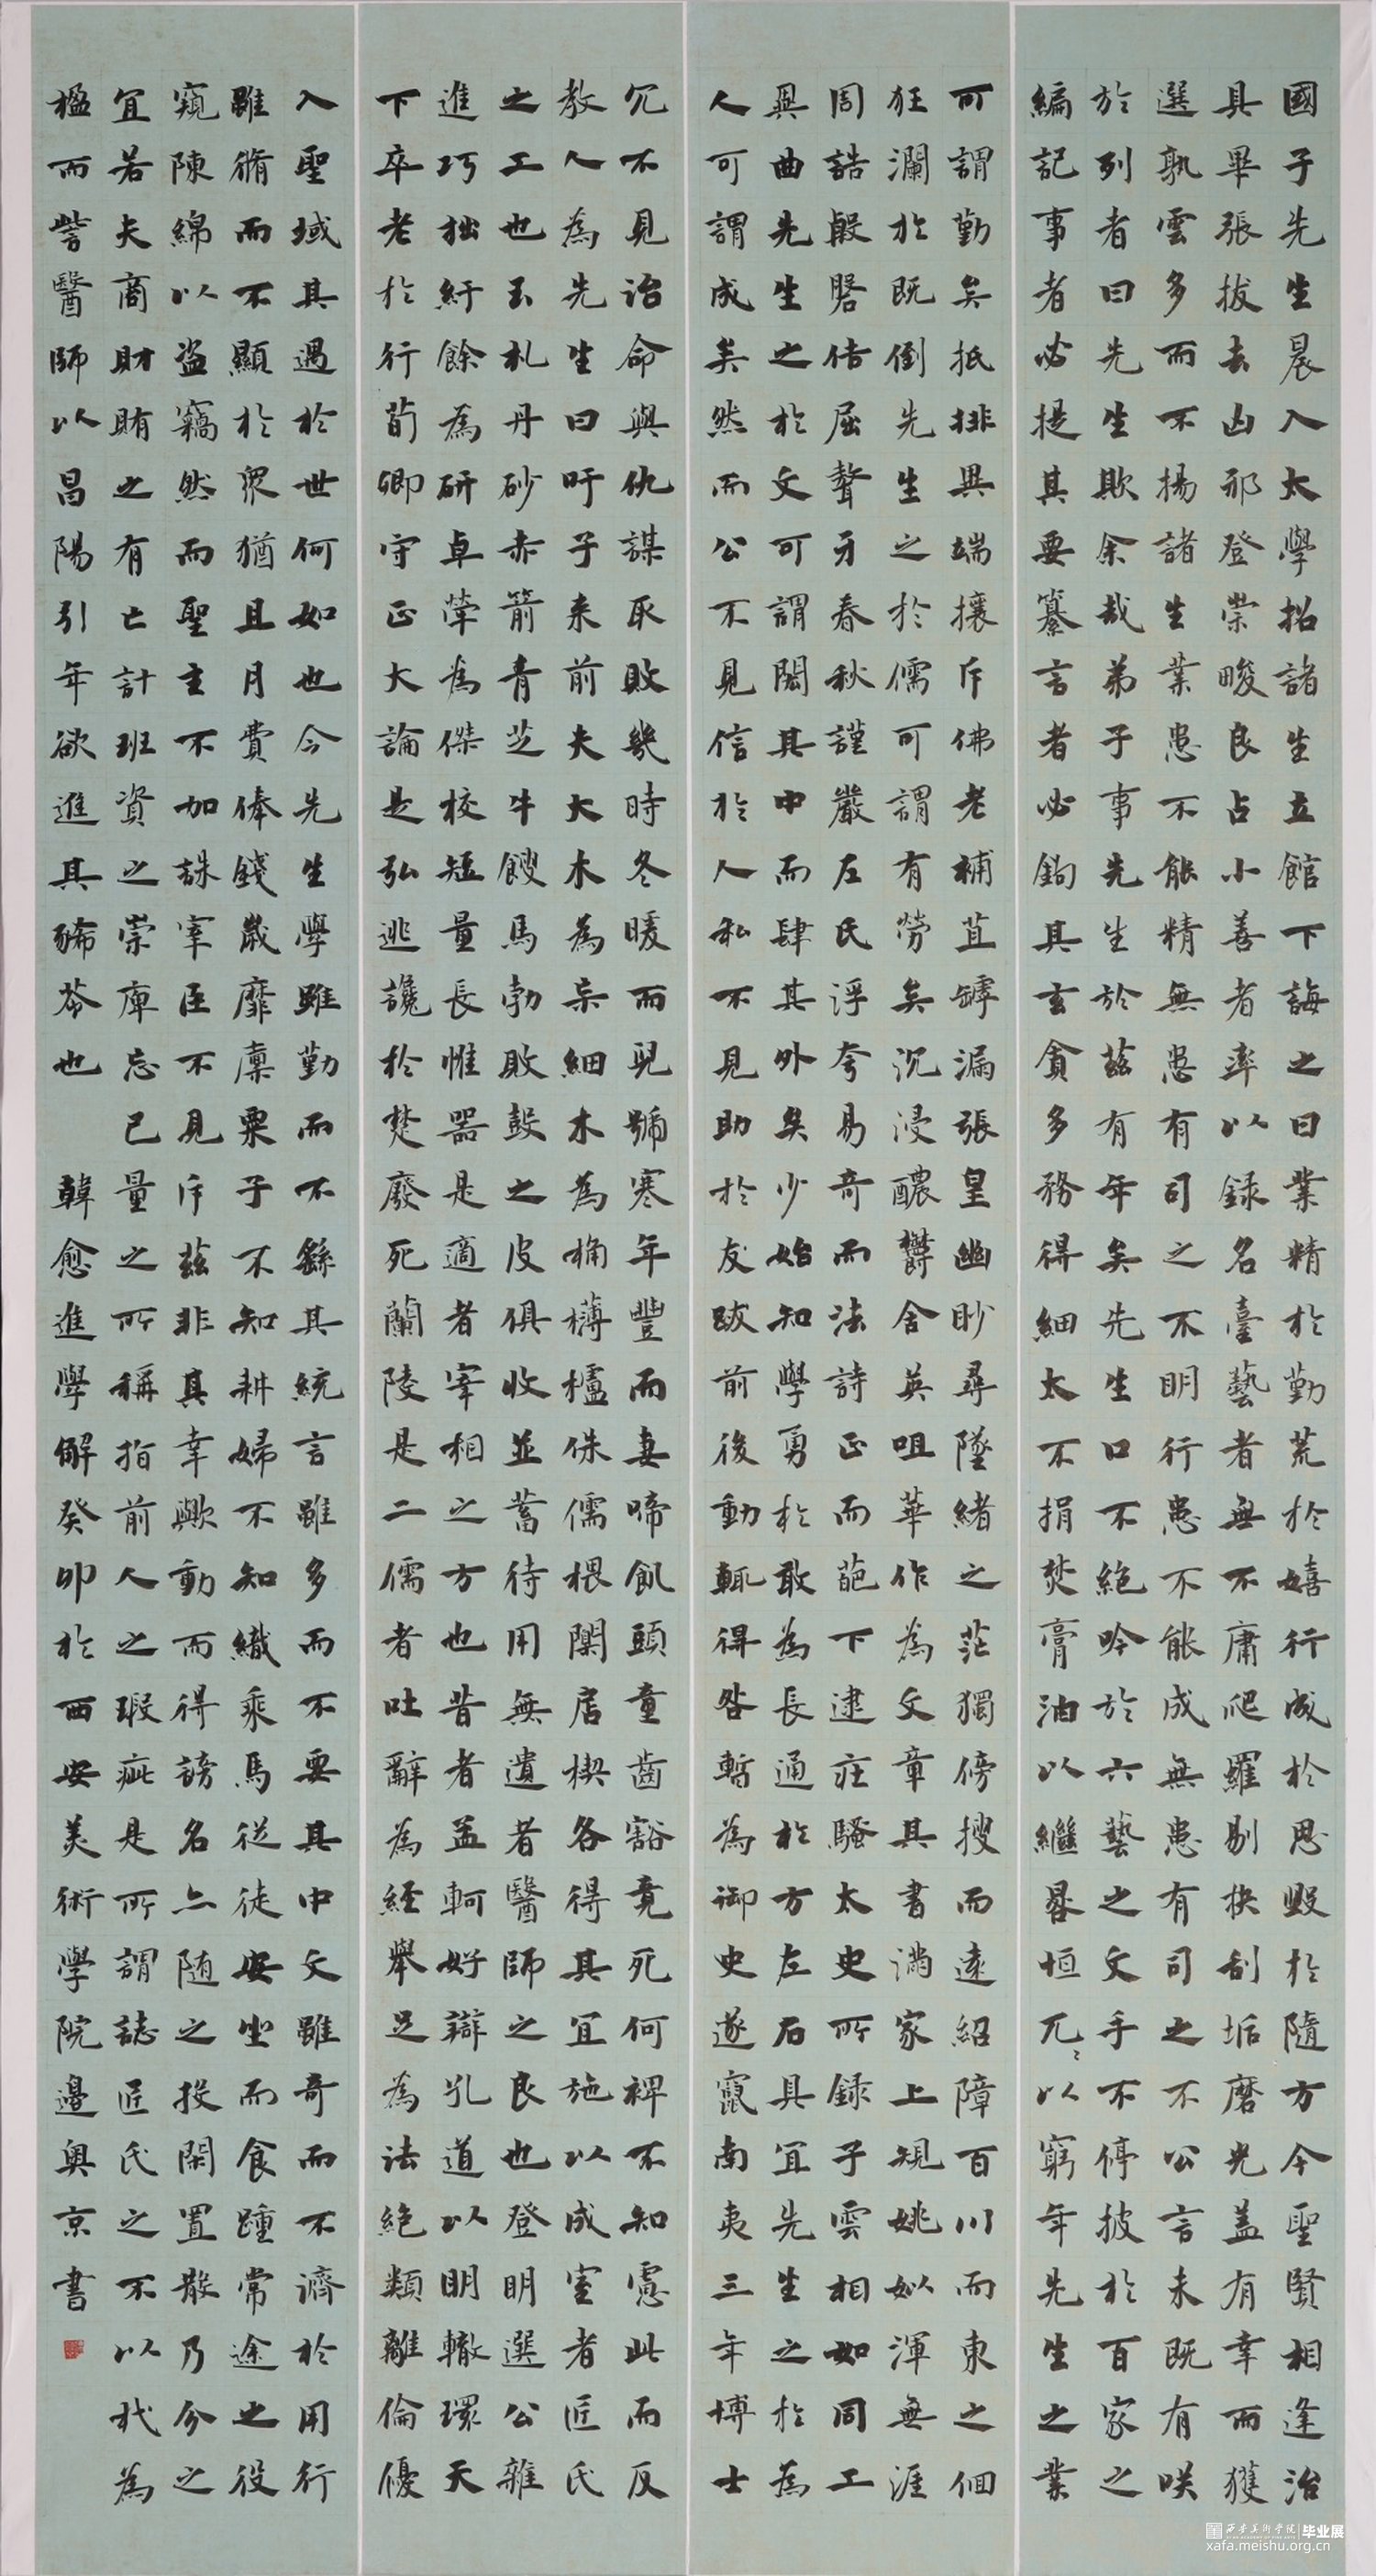 國子先生晨入太學招諸生立館下誨之曰業精於勤荒於嬉行成於思毀於隨方今聖賢相逢治
具畢張拔去凶邪登崇畯良占小善者率以録名壹藝者無不庸爬羅剔抉刮垢磨光蓋有幸而獲
選孰雲多而不揚諸生業患不能精無患有司之不明行患不能成無患有司之不公言未既有咲
於列者曰先生欺余哉弟子事先生於茲有年矣先生口不絕吟於六藝之文手不停披於百家之
編記事者必提其要纂言者必鉤其玄貪多務得細太不捐焚膏油以繼晷恒兀〻以窮年先生之業
可謂勤矣抵排異端攘斥佛老補苴罅漏張皇幽眇尋墜緒之茫獨傍搜而遠紹障百川而東之佪
狂瀾於既倒先生之於儒可謂有勞矣沉浸醲鬱含英咀華作為文章其書滿家上規姚姒渾無涯
周誥殷盤佶屈聱牙春秋謹嚴左氏浮夸易奇而法詩正而葩下逮莊騷太史所録子雲相如同工
異曲先生之於文可謂閎其中而肆其外矣少始知學勇於敢為長通於方左右具宜先生之於為
人可謂成矣然而公不見信於人私不見助於友跋前後動輒得咎暫為御史遂竄南夷三年博士
冗不見治命與仇謀取敗幾時冬暖而兒號寒年豐而妻啼飢頭童齒豁竟死何裨不知慮此而反
教人為先生曰吁子来前夫大木為杗細木為桷欂櫨侏儒椳闑扂楔各得其宜施以成室者匠氏
之工也玉札丹砂赤箭青芝牛餿馬勃敗鼓之皮俱收並蓄待用無遺者醫師之良也登明選公雜
進巧拙紆餘為研卓犖為傑校短量長惟器是適者宰相之方也昔者孟軻好辯孔道以明轍環天
下卒老於行荀卿守正大論是弘逃讒於楚廢死蘭陵是二儒者吐辭為經舉足為法絕類離倫優
入聖域其遇於世何如也今先生學雖勤而不繇其統言雖多而不要其中文雖奇而不濟於用行
雖脩而不顯於眾猶且月費俸錢歲靡廩粟子不知耕婦不知織乘馬從徒安坐而食踵常途之役
窺陳綿以盜竊然而聖主不加誅宰臣不見斥茲非其幸歟動而得謗名亦随之投閑置散乃分之
宜若夫商財賄之有亡計班資之崇庳忘己量之所稱指前人之瑕疵是所謂誌匠氏之不以杙為
楹而訾醫師以昌陽引年欲進其豨苓也 韓愈進學解癸卯於西安美術學院邊奧京書
西安美術學院 毕业展
xafa.meishu.org.cn